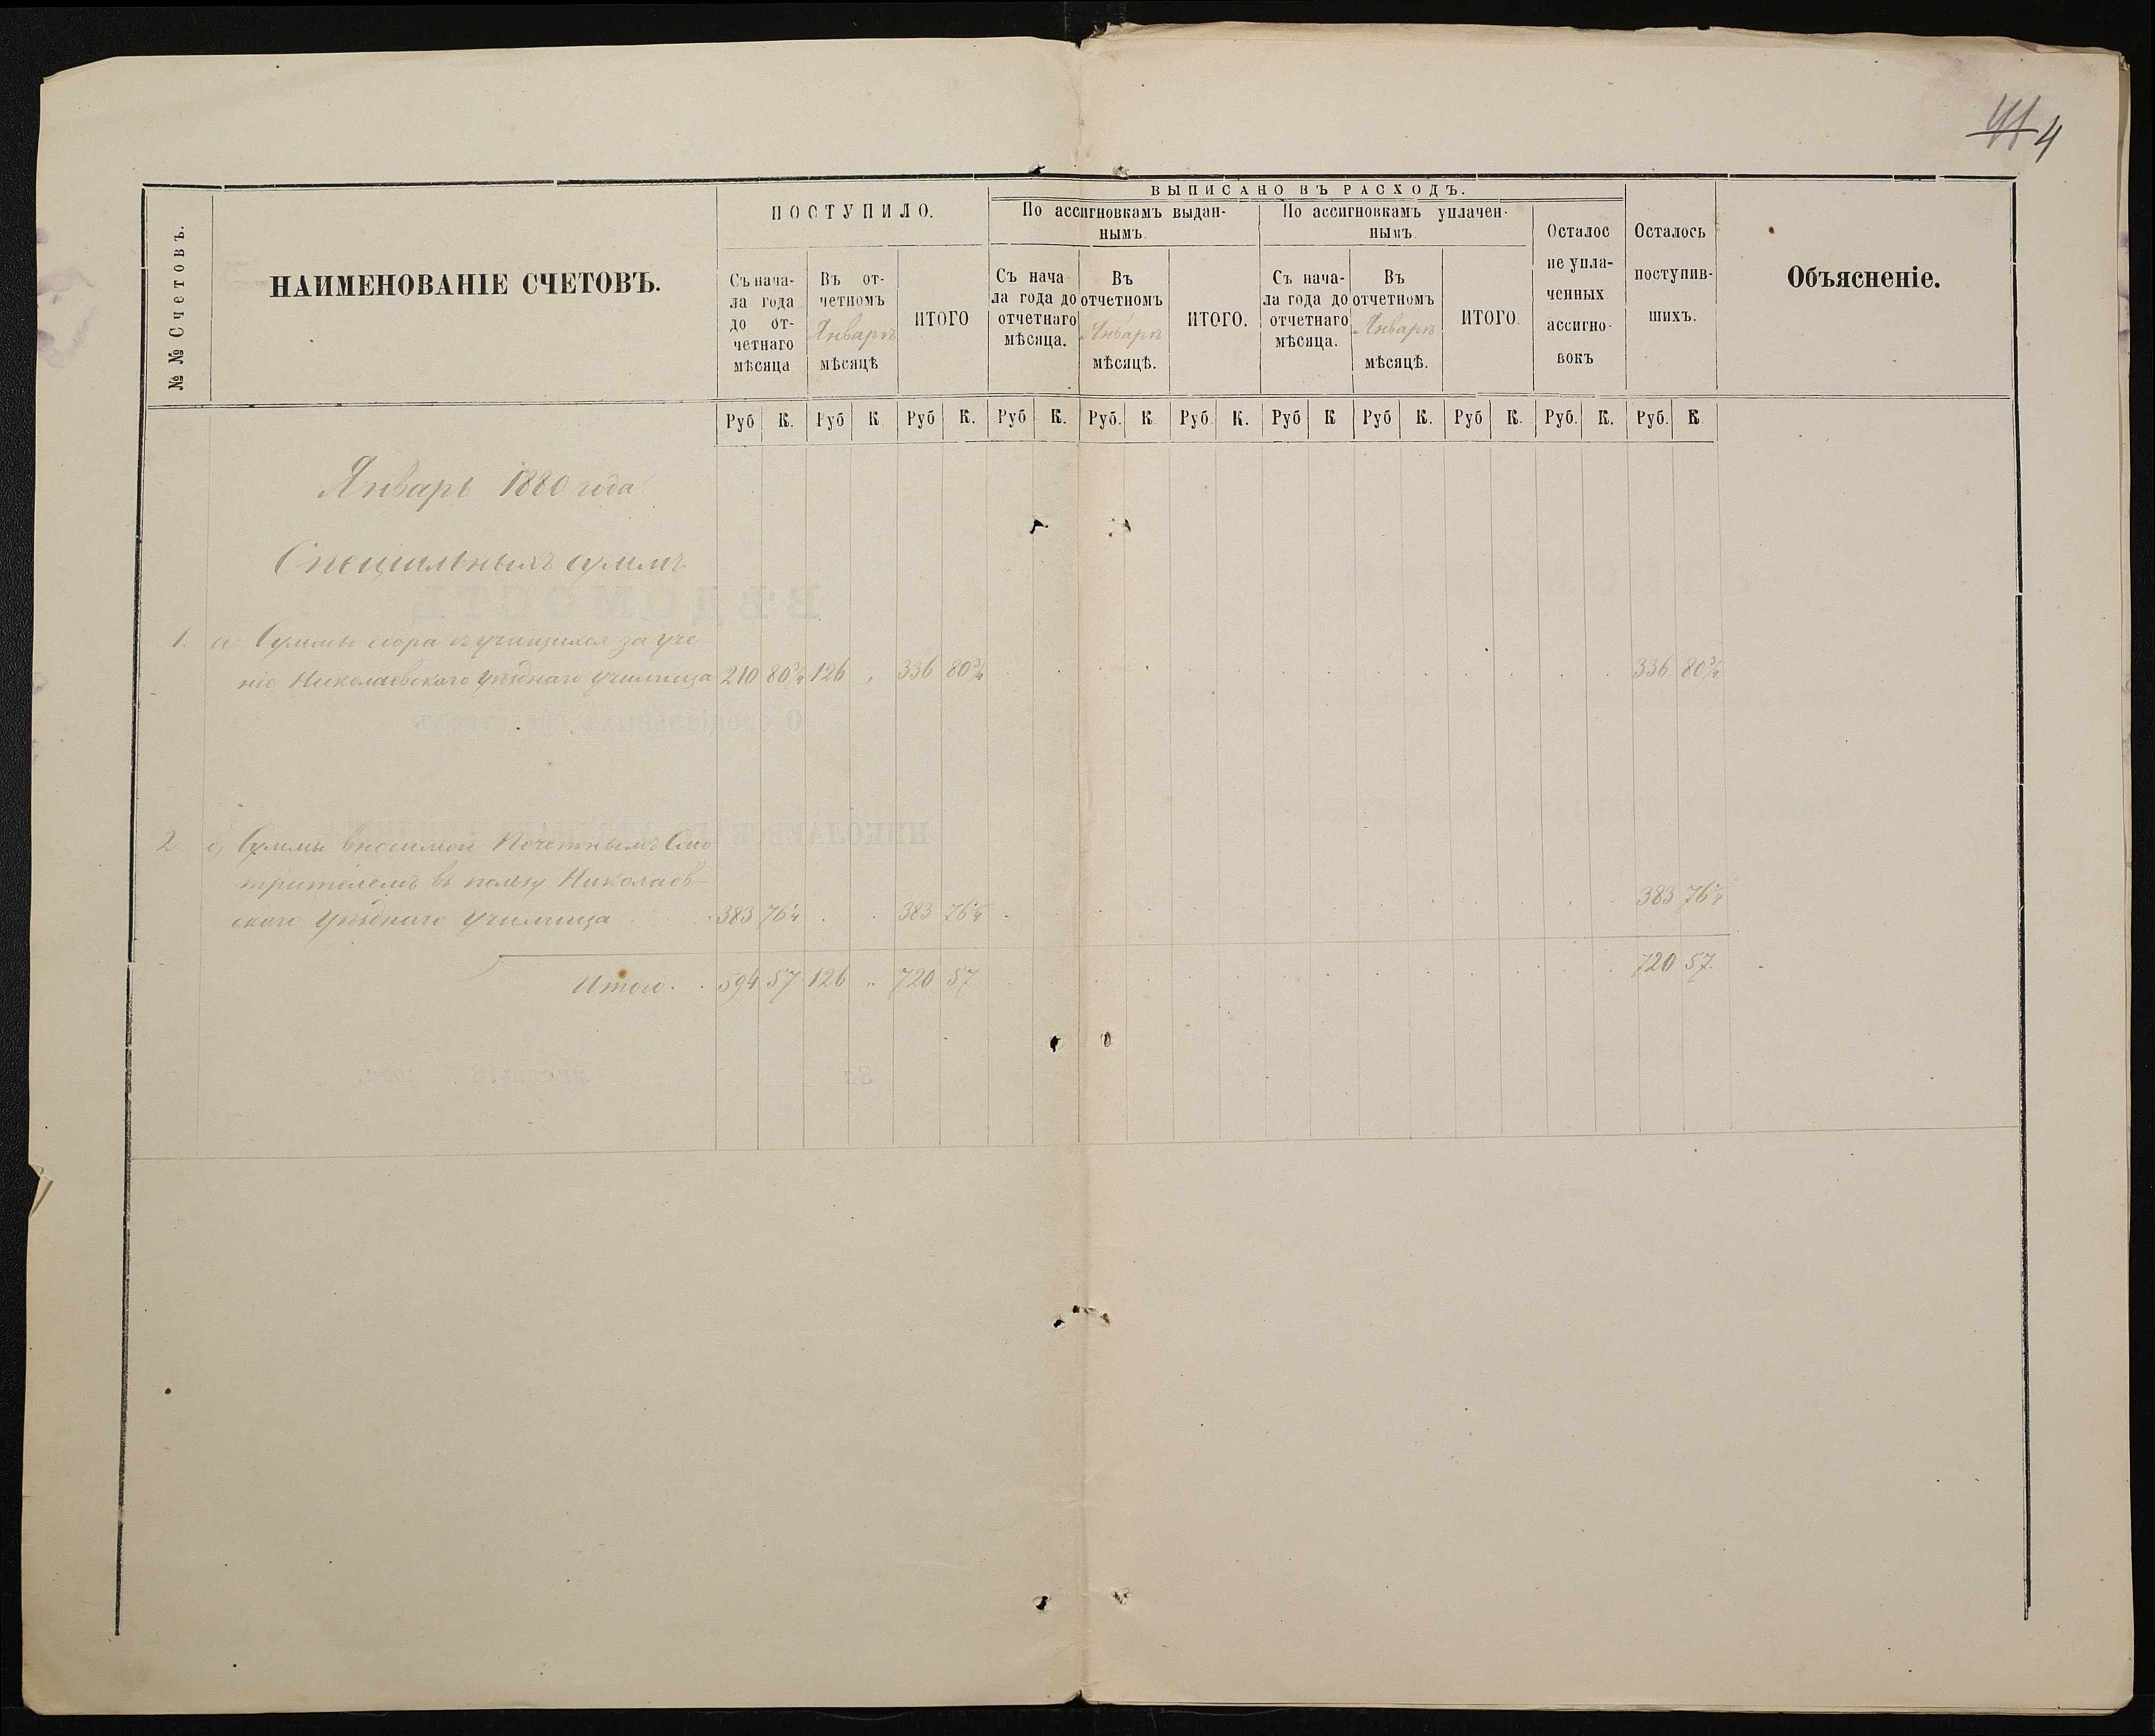 4
№ № Счетовъ.
НАИМЕНОВАНІЕ СЧЕТОВЪ.
ПОСТУПИЛО.
Съ нача-
ла года
до от-
четнаго
мѣсяца
Въ от-
четномъ
Январѣ
мѣсяцѣ
ИТОГО
ВЫПИСАНО ВЪ РАСХОДЪ.
По ассигновкамъ выдан-
нымъ.
Съ нача
ла года до
отчетнаго
мѣсяца.
Въ
отчетномъ
Январѣ
мѣсяцѣ.
ИТОГО.
По ассигновкамъ уплачен-
нымъ.
Съ нача-
ла года до
отчетнаго
мѣсяца.
Въ
отчетномъ
Январѣ
мѣсяцѣ.
ИТОГО.
Осталос
не упла-
ченных
ассигно-
вокъ
Осталось
поступив-
шихъ.
Объясненіе.
Руб К. Руб К Руб К. Руб К. Руб. К Руб. К. Руб К Руб К. Руб К. Руб. К. Руб. К
Январь 1880 года
Спеціальныхъ суммъ
1. а Суммы сбора съ учащихся за уче
ніе Николаевскаго Уѣзднаго Училища 210 80¾ 126 „ 336 80¾ 336 80¾
2 б, Суммы вносимой Почетнымъ Смо
трителемъ въ пользу Николаев-
скаго Уѣзднаго Училища 383 76¼ 383 76¼ 383 76¼
Итого. 594 57 126 „ 720 57 720 57.